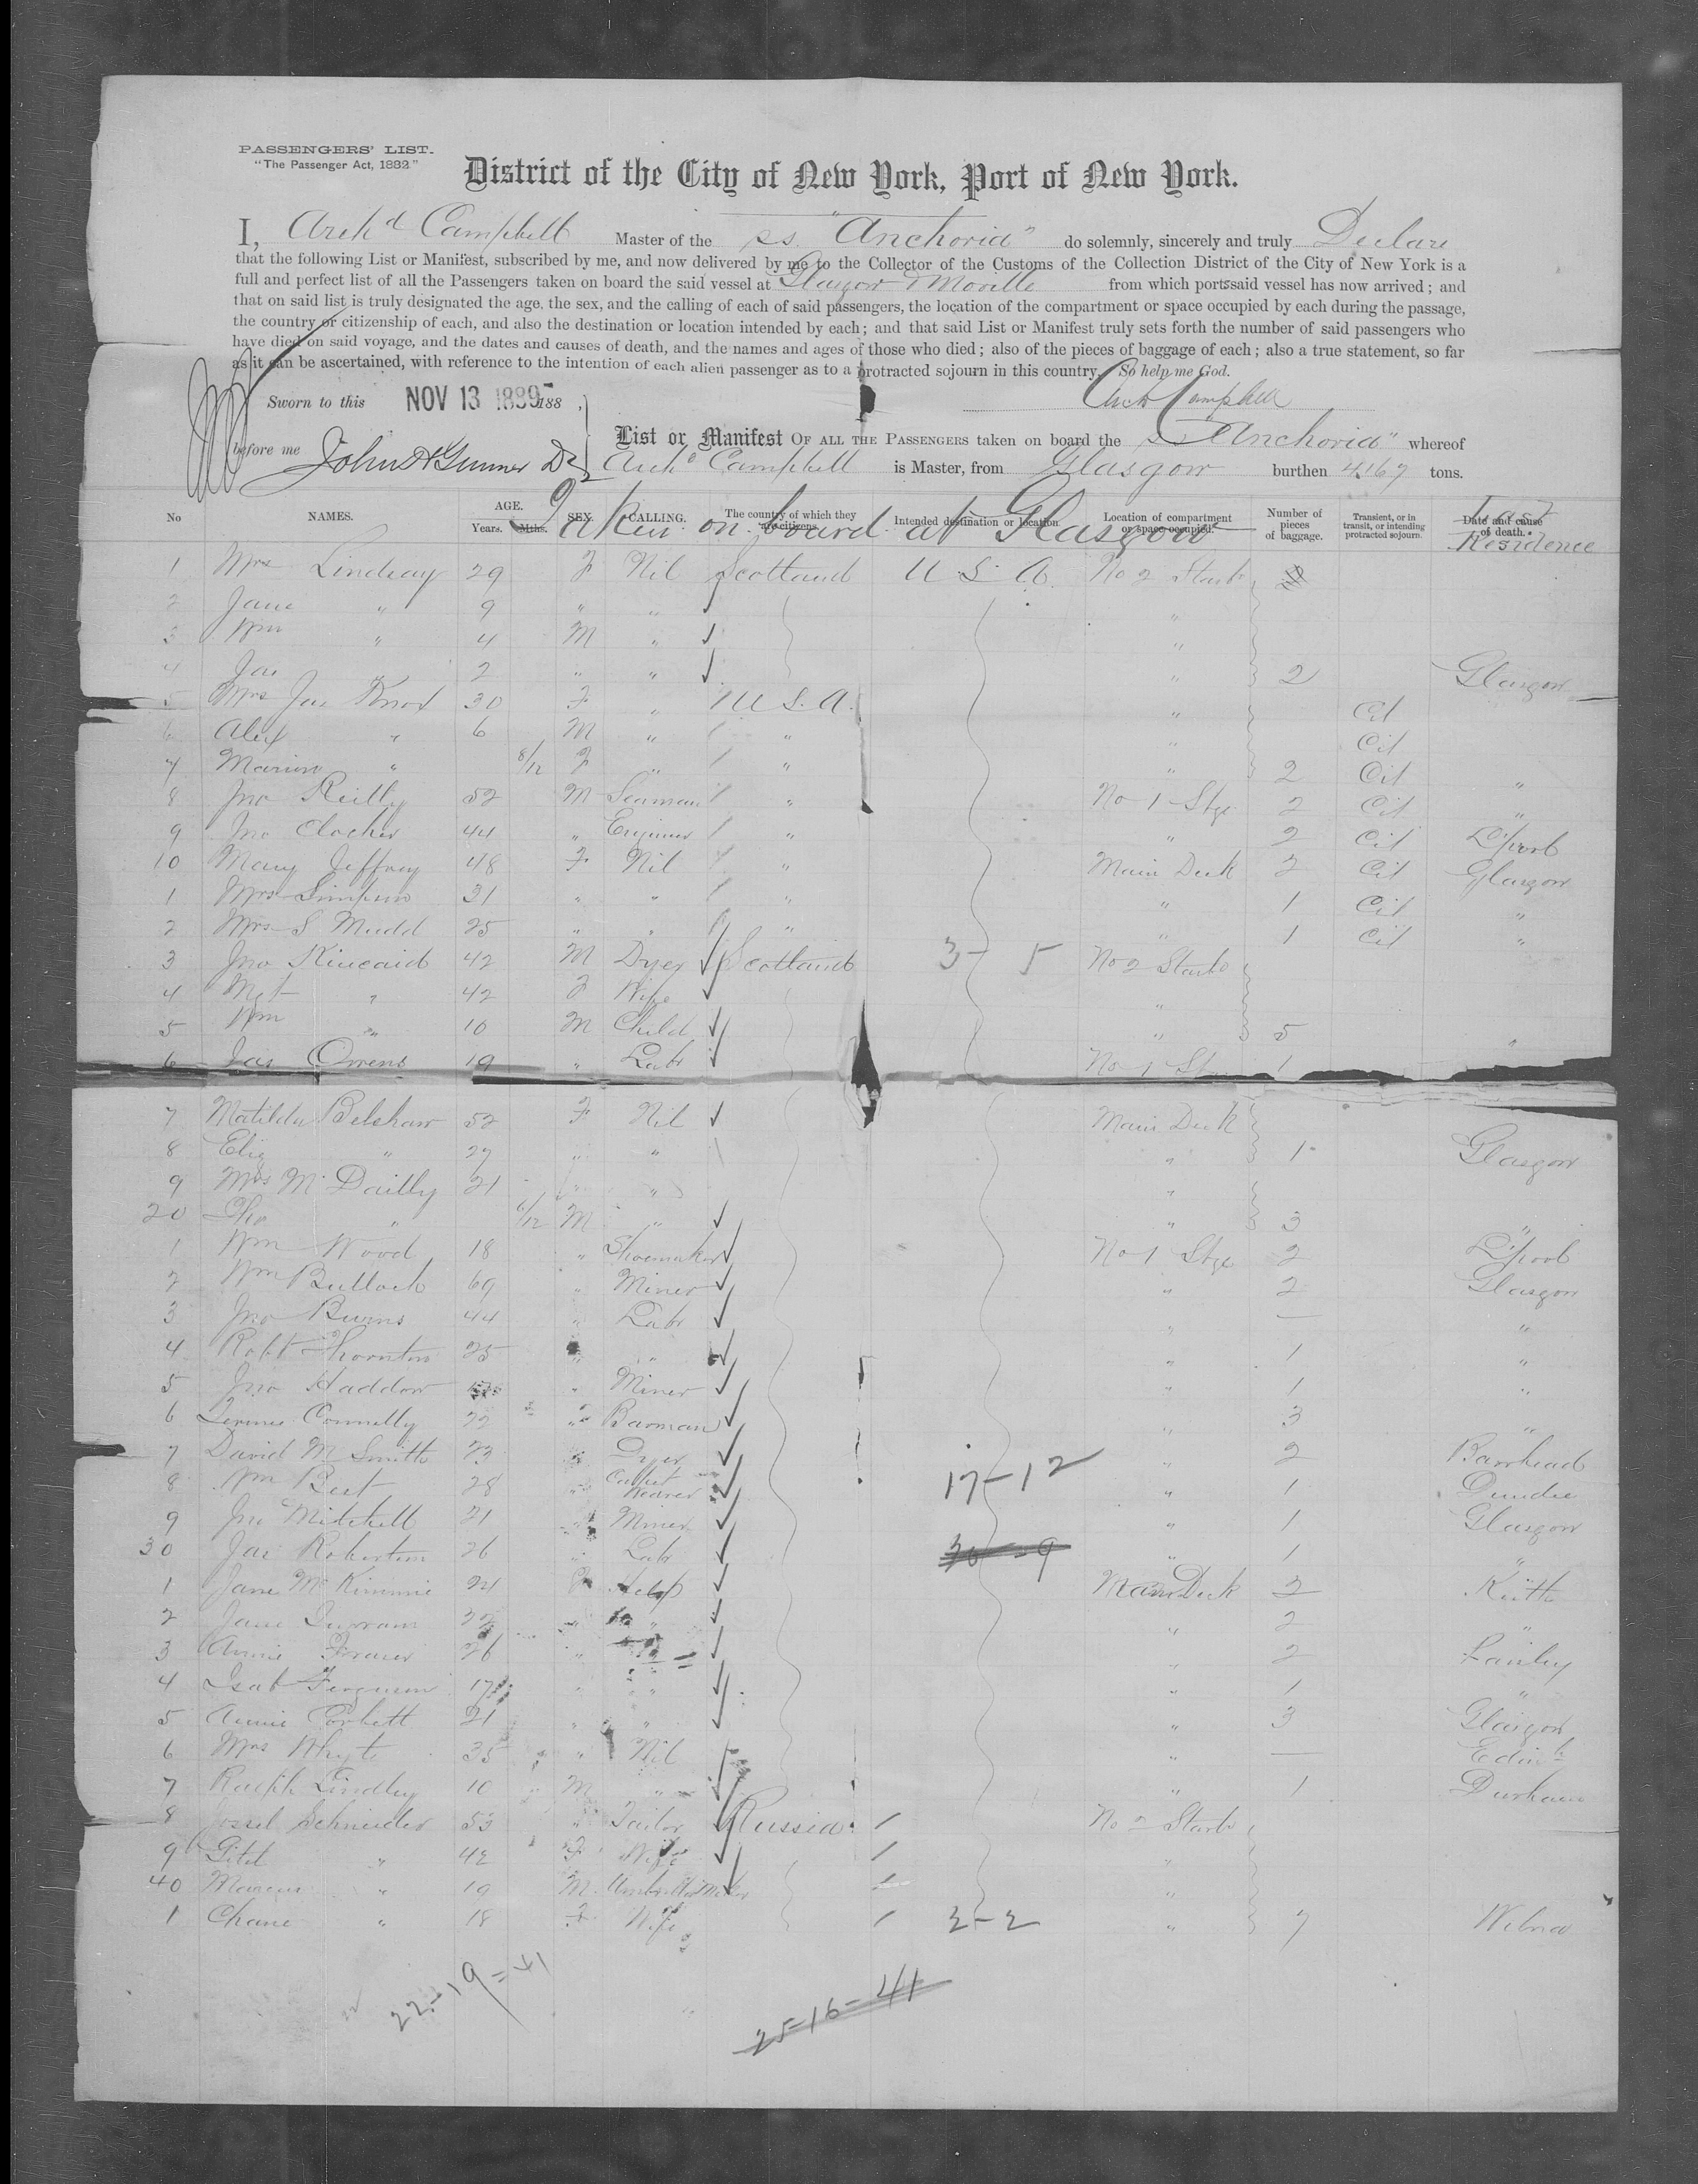 PASSENGERS' LIST.
"The Passenger Act, 1882"
District of the City of New York, Port of New York.
I, Archd Campbell Master of the ss. "Anchoria" do solemnly, sincerely and truly Declare
that the following List or Manifest, subscribed by me, and now delivered by me to the Collector of the Customs of the Collection District of the City of New York is a
full and perfect list of all the Passengers taken on board the said vessel at Glasgow & Moville from which ports said vessel has now arrived; and
that on said list is truly designated the age, the sex, and the calling of each of said passengers, the location of the compartment or space occupied by each during the passage,
the country or citizenship of each, and also the destination or location intended by each; and that said List or Manifest truly sets forth the number of said passengers who
have died on said voyage, and the dates and causes of death, and the names and ages of those who died; also of the pieces of baggage of each; also a true statement, so far
as it can be ascertained, with reference to the intention of each alien passenger as to a protracted sojourn in this country. So help me God.
Sworn to this NOV 13 1889 188 , Arch Campbell
before me
List or Manifest OF ALL THE PASSENGERS taken on board the ss "Anchoria" whereof
Archd Campbell is Master, from Glasgow burthen 4167 tons.
No NAMES. AGE. Years. Mths. SEX. CALLING. The country of which they are citizens. Intended destination or location. Location of compartment or space occupied. Number of pieces of baggage. Transient, or in transit, or intending protracted sojourn. Date and cause of death. Last Residence
Taken on board at Glasgow
1 Mrs Lindsay 29 F Nil Scotland U S. A. No 2 Starb
2 Jane " 9 " " "
3 Wm " 4 M " "
4 Jas 2 " " " 2 Glasgow
5 Mrs Jas Knox 30 F " U S. A. " Cit
6 Alex " 6 M " " " Cit
7 Marion " 8/12 F " " " 2 Cit "
8 Jno Reilly 52 M Seaman " No 1 Stge 2 Cit "
9 Jno Clocher 44 " Engineer " " 2 Cit L'pool
10 Mary Jeffrey 48 F Nil " Main Deck 2 Cit Glasgow
1 Mrs Simpson 31 " " " " 1 Cit "
2 Mrs S Mudd 25 " " " " 1 Cit "
3 Jno Kincaid 42 M Dyer Scotland 3-5 No 2 Starb
4 Mgt " 42 F Wife "
5 Wm " 10 M Child " 5 "
6 Jas Owens 19 " Labr No 1 St 1
7 Matilda Belshaw 52 F Nil Main Deck
8 Eliz " 27 " " " 1 Glasgow
9 Mrs M. Dailly 21 " " "
20 " 6/12 M " " 3 "
1 Wm Wood 18 " Shoemaker No 1 Stge 2 L'pool
2 Wm Bullock 69 " Miner " 2 Glasgow
3 Jno Burns 44 " Labr " — "
4 Robt Thornton 25 " " " 1 "
5 Jno Haddow " Miner " 1 "
6 Connelly 22 " Barman " 3 "
7 David M Smith 23 " Dyer 17-12 " 2 Barrhead
8 Wm Best 28 " Carpet Weaver " 1 Dundee
9 Jno Mitchell 21 " Miner " 1 Glasgow
30 Jas Robertson 26 " Labr 30-9 " 1 "
1 Jane McKimmie 24 F Help Main Deck 2 Keith
2 Jane 22 " " " 2 "
3 Annie Fraser 26 " " " 2
4 Isab Ferguson 17 " " " 1 "
5 Annie Corbett 21 " " " 3 Glasgow
6 Mrs Whyte 35 " Nil " — Edinh
7 Ralph Lindley 10 M " " 1 Durham
8 Jossel Schneider 53 " Tailor Russia No 2 Starb
9 Gitel " 42 F Wife "
40 Marcus " 19 M Umbrella Maker "
1 Chane " 18 F Wife 2-2 " 7 Wilna
22-19=41
25-16-41